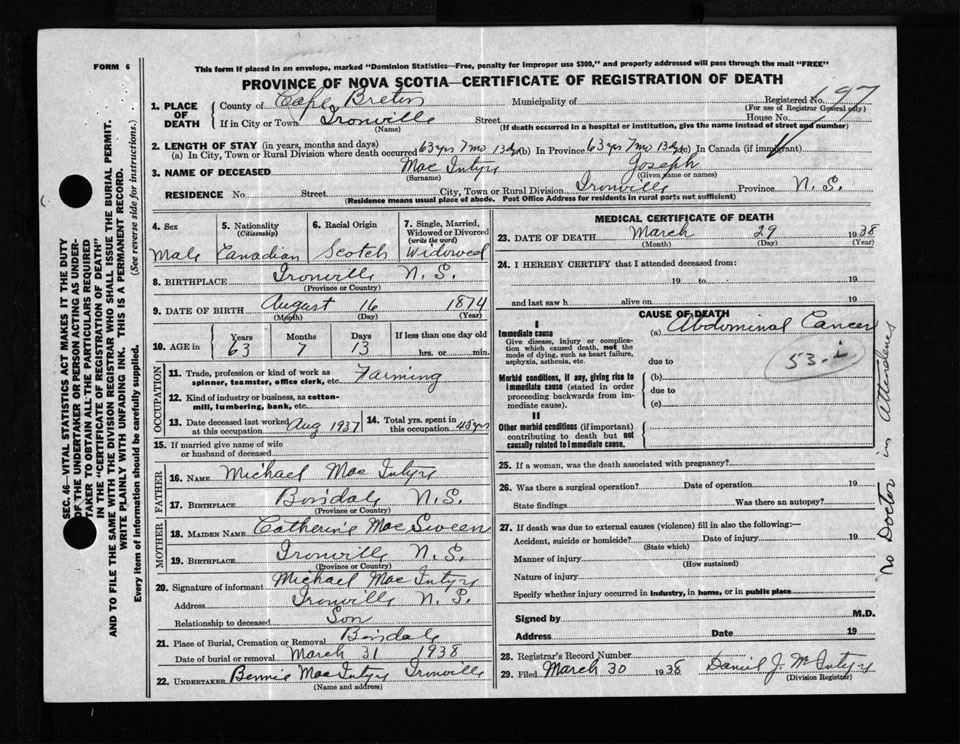 FORM 6
This form if placed in an envelope, marked "Dominion Statistics—Free, penalty for improper use $300," and properly addressed will pass through the mail "FREE"
PROVINCE OF NOVA SCOTIA—CERTIFICATE OF REGISTRATION OF DEATH
1. PLACE OF DEATH
County of Cape Breton Municipality of Registered No. 697
(For use of Registrar General only)
If in City or Town Ironville Street House No.
(Name) (If death occurred in a hospital or institution, give the name instead of street and number)
2. LENGTH OF STAY (in years, months and days)
(a) In City, Town or Rural Division where death occurred 63 yrs 7 mo 13 dys (b) In Province 63 yrs 7 mo 13 dys (c) In Canada (if immigrant)
3. NAME OF DECEASED Mac Intyre Joseph
(Surname) (Given name or names)
RESIDENCE No. Street City, Town or Rural Division Ironville Province N. S.
(Residence means usual place of abode. Post Office Address for residents in rural parts not sufficient)
4. Sex Male
5. Nationality (Citizenship) Canadian
6. Racial Origin Scotch
7. Single, Married, Widowed or Divorced (write the word) Widowed
8. BIRTHPLACE Ironville N. S.
(Province or Country)
9. DATE OF BIRTH August 16 1874
(Month) (Day) (Year)
10. AGE in Years 63 Months 7 Days 13 If less than one day old hrs. or min.
OCCUPATION
11. Trade, profession or kind of work as spinner, teamster, office clerk, etc. Farming
12. Kind of industry or business, as cotton-mill, lumbering, bank, etc.
13. Date deceased last worked at this occupation Aug 1937
14. Total yrs. spent in this occupation 45 yrs
15. If married give name of wife or husband of deceased
FATHER
16. NAME Michael Mac Intyre
17. BIRTHPLACE Boisdale N. S.
(Province or Country)
MOTHER
18. MAIDEN NAME Catherine Mac Sween
19. BIRTHPLACE Ironville N. S.
(Province or Country)
20. Signature of informant Michael Mac Intyre
Address Ironville N. S.
Relationship to deceased Son
21. Place of Burial, Cremation or Removal Boisdale
Date of burial or removal March 31 1938
22. UNDERTAKER Bennie MacIntyre Ironville
(Name and address)
MEDICAL CERTIFICATE OF DEATH
23. DATE OF DEATH March 29 1938
(Month) (Day) (Year)
24. I HEREBY CERTIFY that I attended deceased from:
19 to 19
and last saw h alive on 19
CAUSE OF DEATH
I
Immediate cause (a) Abdominal Cancer
Give disease, injury or complication which caused death, not the mode of dying, such as heart failure, asphyxia, asthenia, etc.
due to
53-i
Morbid conditions, if any, giving rise to immediate cause (stated in order proceeding backwards from immediate cause).
(b)
due to
(c)
II
Other morbid conditions (if important) contributing to death but not causally related to immediate cause.
25. If a woman, was the death associated with pregnancy?
26. Was there a surgical operation? Date of operation 19
State findings Was there an autopsy?
27. If death was due to external causes (violence) fill in also the following:—
Accident, suicide or homicide? Date of injury 19
(State which)
Manner of injury
(How sustained)
Nature of injury
Specify whether injury occurred in industry, in home, or in public place
Signed by M.D.
Address Date 19
28. Registrar's Record Number
29. Filed March 30 1938 Daniel J. McIntyre
(Division Registrar)
No Doctor in Attendence
SEC. 46—VITAL STATISTICS ACT MAKES IT THE DUTY
OF THE UNDERTAKER OR PERSON ACTING AS UNDER-
TAKER TO OBTAIN ALL THE PARTICULARS REQUIRED
IN THE "CERTIFICATE OF REGISTRATION OF DEATH"
AND TO FILE THE SAME WITH THE DIVISION REGISTRAR WHO SHALL ISSUE THE BURIAL PERMIT.
WRITE PLAINLY WITH UNFADING INK. THIS IS A PERMANENT RECORD.
Every item of information should be carefully supplied. (See reverse side for instructions.)